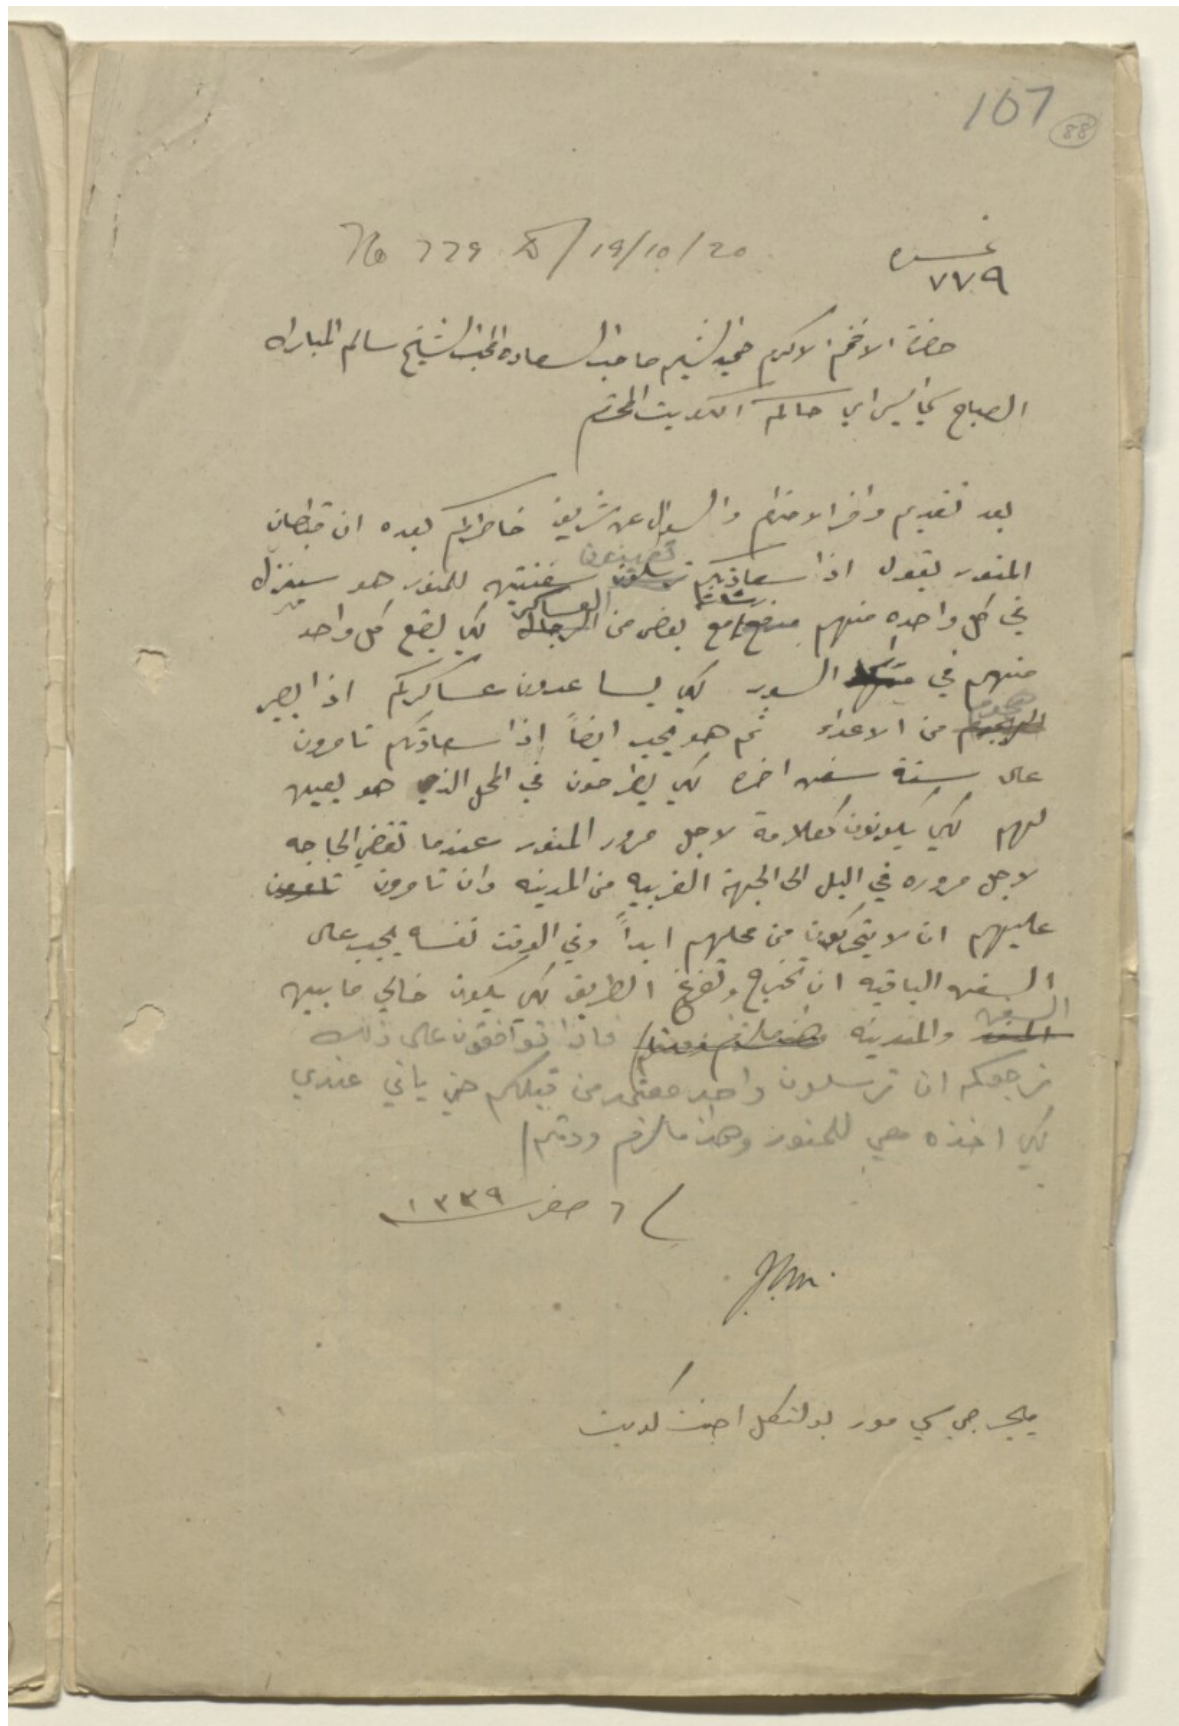 107
88
No 779 D/ 19/10/20
نمره
٧٧٩
حضرة الافخم الاكرم حميد الشيم صاحب السعاده المحب الشيخ سالم المبارك
الصباح سي آئي اي حاكم الكويت المحترم
بعد تقديم وافر الاحترام والسوال عن شريف خاطركم بعده ان قبطان
تعينون
المنور يقول اذا سعادتكم ترسلون سفنتين للمنور هو سينزل
رشاش العساكر
في كل واحده منهم مدفع مع بعض من الرجال لكي يضع كل واحد
منهم في السور لكي يساعدون عساكركم اذا يصير
هجوم
من الاعداء ثم هو يحب ايضاً اذا سعادتكم تامرون
على ستة سفن اخره لكي يطرحون في المحل الذي هو يعين
لهم لكي يكونون كعلامة لاجل مرور المنور عندما تقضي الحاجه
لاجل مروره في اليل الى الجهة الغربيه من المدينه وان تامرون تامرون
عليهم ان لا يتحركون من محلهم ابداً وفي الوقت نفسه يجب على
السفن الباقيه ان تخرج وتفرغ الطريق لكي يكون خالي ما بين
السفن
والمدينه فاذا توافقون على ذلك
نرجوكم ان ترسلون واحد معتمد من قبلكم حتى ياتي عندي
لكي اخذه معي للمنور وهذا ما لزم ودمتم
٦ صفر ١٣٣٩
J.C.M.
ميجر جي سي مور بولتكل اجنت كويت